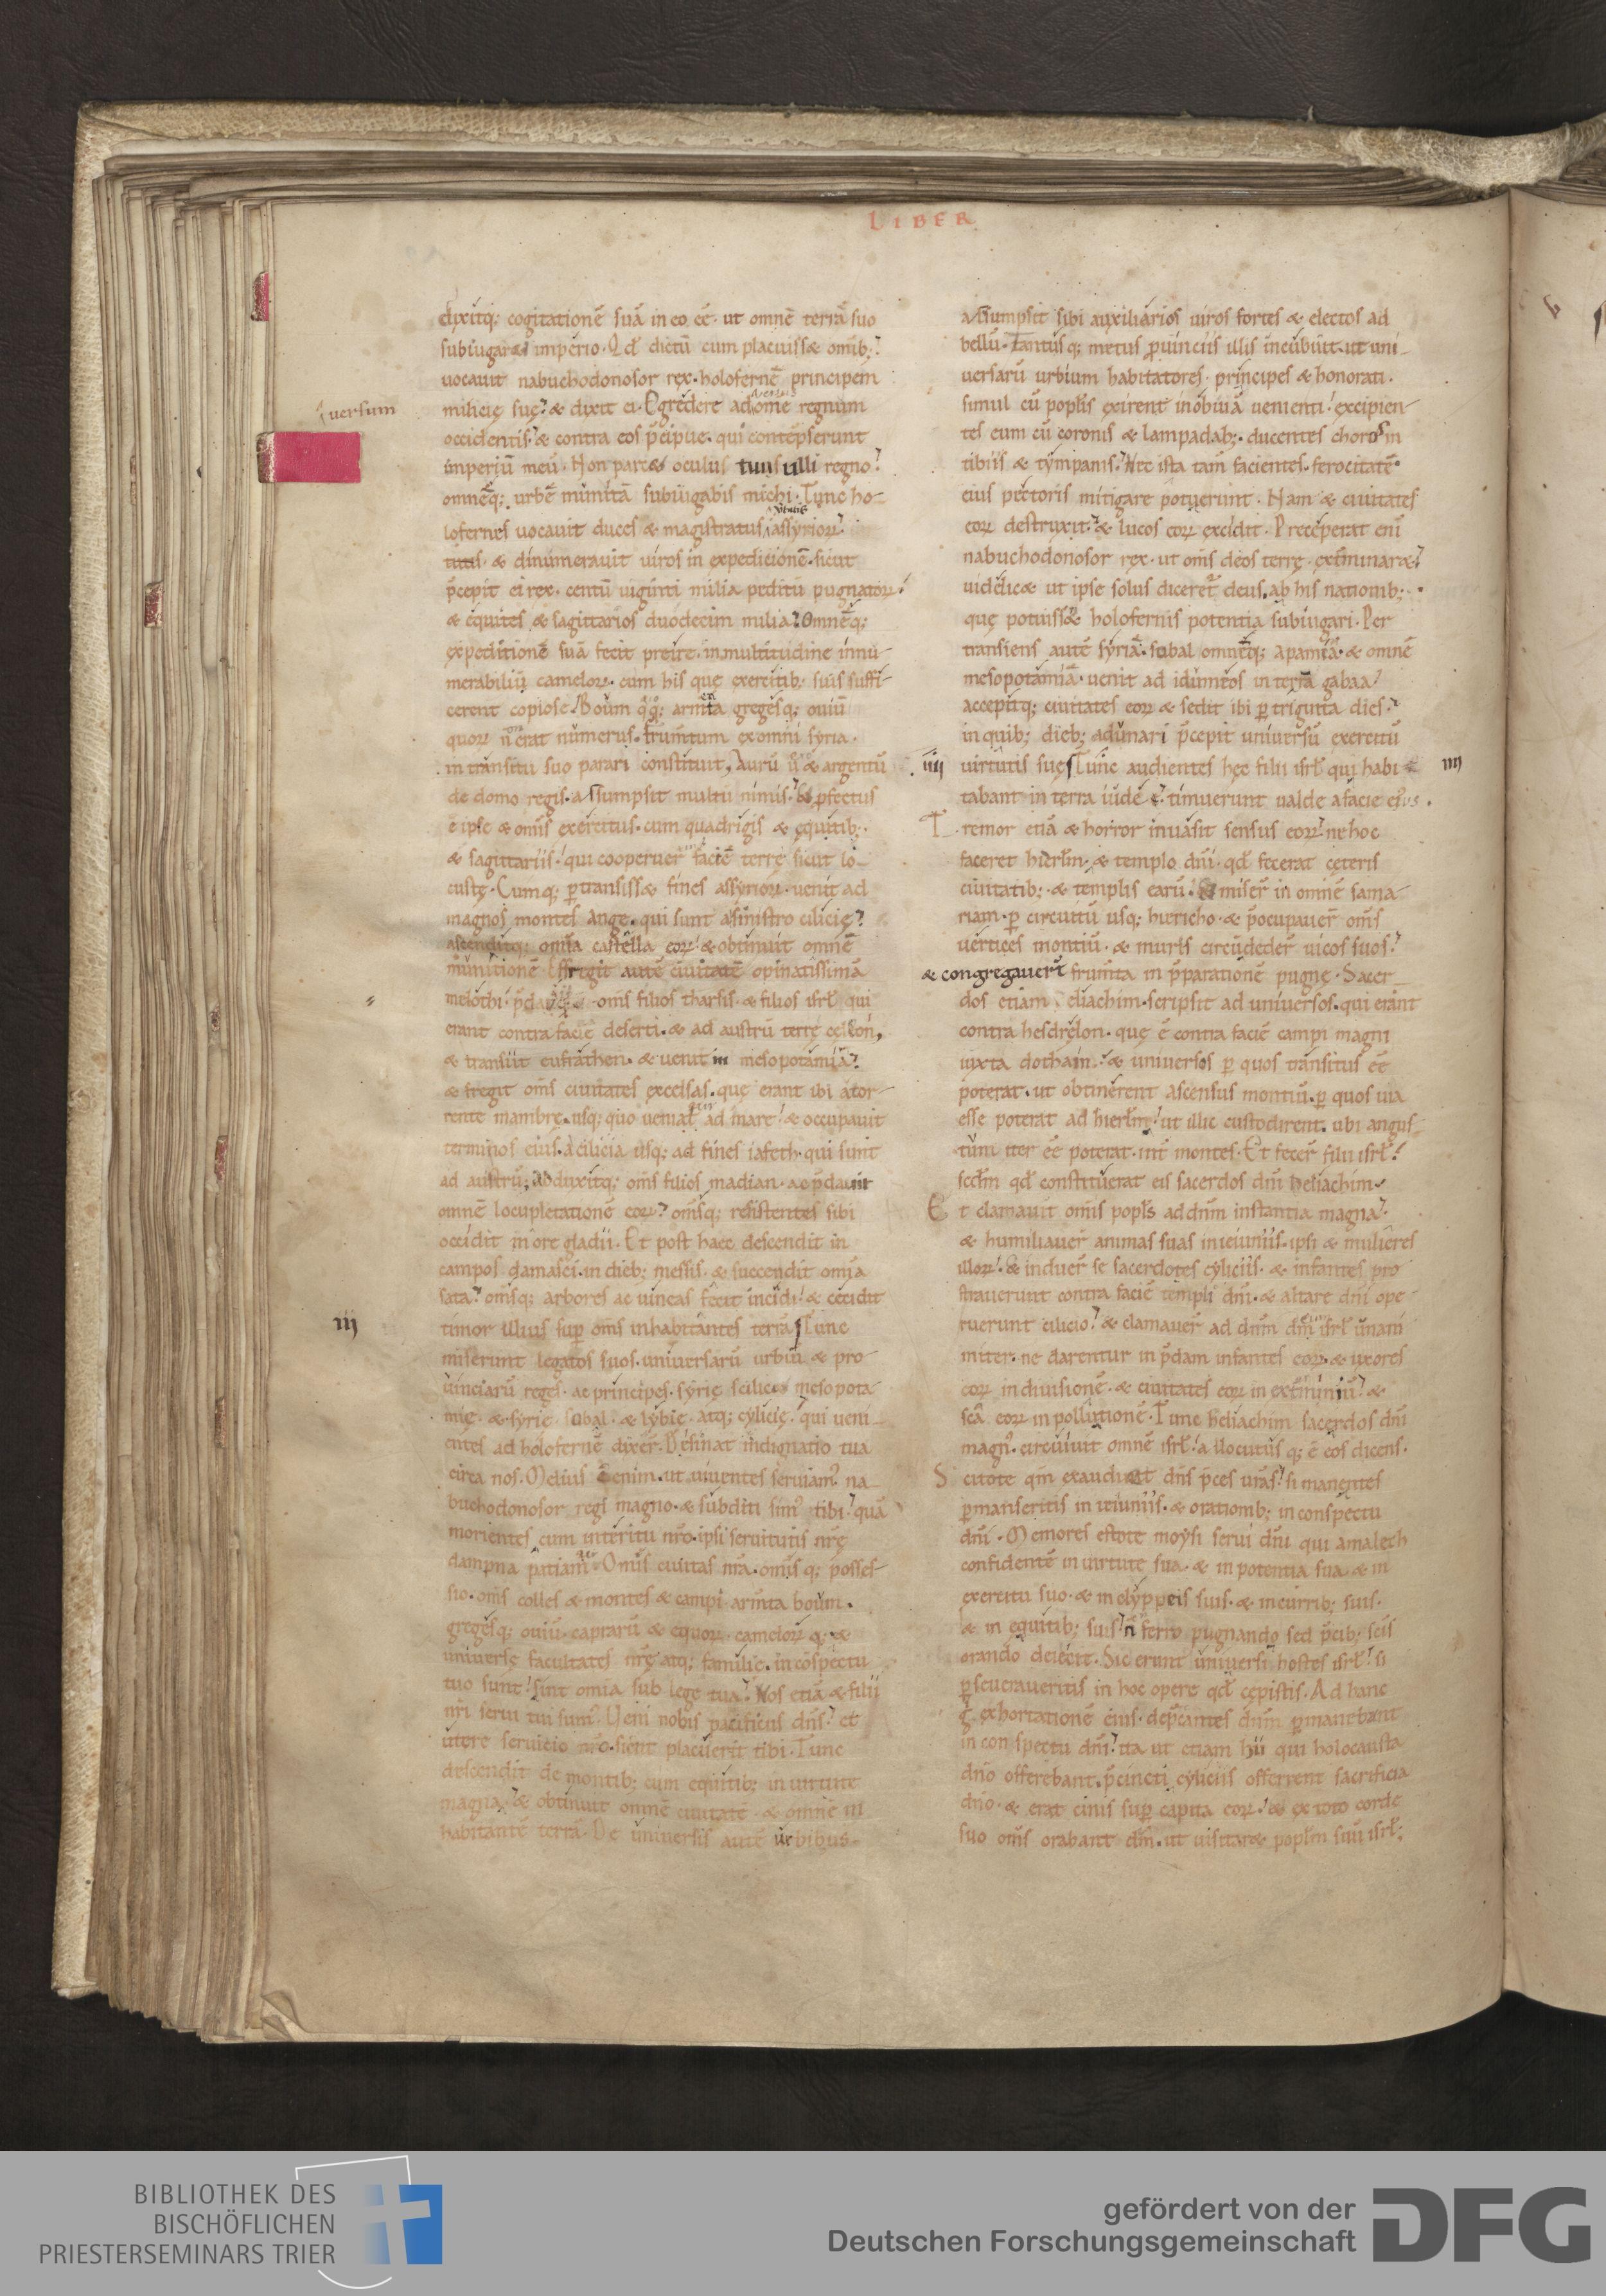 LIBER
dixitq; cogitationē suā in eo eē· ut omnē terrā suo
subiugaret imperio· Qd̄ dictū cum placuisset omīb;
uocauit nabuchodonosor rex· holofernē principem
milicię suę· & dixit ei· Egredere ad omē regnum
uersum
occidentis· & contra eos p̄cipue· qui contēpserunt
imperiū meū· Non parcet oculus tuus ulli regno
omnēq; urbē munitā subiugabis michi· Tunc ho-
lofernes uocauit duces & magistratus uirtutis assyrioꝝ
& dinumerauit uiros in expedicionē· sicut
p̄cepit ei rex· centū uiginti milia peditū pugnatoꝝ
& equites & sagittarios duodecim milia· Omnēq;
expeditionē suā fecit preire· in multitudine innu-
merabiliū cameloꝝ· cum his quę exercitib; suis suffi-
cerent copiose· Boum qq; armenta gregesq; ouiū
quoꝝ n̄ erat numerus· frum̄tum ex omni syria·
in transitu suo parari constituit· Aurū ū & argentū
de domo regis· assumpsit multū nimis· & p̄fectus
ē ipse & om̄s exercitus· cum quadrigis & equitib;
& sagittariis· qui cooperuer̄ faciē terrę sicut lo-
custę· Cumq; ꝑtransisset fines assyrioꝝ· uenit ad
magnos montes ange· qui sunt a sinistro cilicię
ascenditq; omīa castella eoꝝ· & obtinuit omnē
munitionē Effregit autē ciuitatē opinatissimā
melothi· p̄dauitq; om̄s filios tharsis· & filios isrl̄ qui
erant contra faciē deserti· & ad austrū terrę cellon,
& transiit eufraten· & uenit in mesopotamiā
& fregit om̄s ciuitates excelsas· que erant ibi a tor-
rente mambre· usq; quo ueniat ad mare· & occupauit
terminos eius· a cilicia usq; ad fines iafeth· qui sunt
ad austrū· abduxitq; om̄s filios madian· ac p̄dauit
omnē locupletationē eoꝝ· om̄sq; resistentes sibi
occidit in ore gladii· Et post haec descendit in
campos damasci· in dieb; messis· & succendit omīa
sata· om̄sq; arbores ac uineas fecit incidi· & cecidit
iij timor illius sup̄ om̄s inhabitantes terrā Tunc
miserunt legatos suos· uniuersarū urbiū & pro-
uinciarū reges· ac principes· syrię scilicet mesopota-
mię· & syrię sobal· & lybię· atq; cylicię· qui ueni-
entes ad holofernē dixer̄· Desinat indignatio tua
circa nos· Melius ē enim· ut uiuentes seruiam· na-
buchodonosor regi magno· & subditi sim tibi· quā
morientes cum interitu nr̄o· ipsi seruitutis nr̄ę
dampna patiamur Omīs ciuitas nr̄a· om̄isq; posses-
sio· om̄s colles & montes & campi· arm̄ta boum·
gregesq; ouiū· caprarū & equoꝝ· cameloꝝ q; &
uniuersę facultates nr̄ę atq; familię· in cōspectu
tuo sunt· sint omīa sub lege tua· Nos etiā & filii
nr̄i serui tui sum· Ueni nobis pacificus dn̄s· et
utere seruicio nr̄o· sicut placuerit tibi· Tunc
descendit de montib; cum equitib; in uirtute
magna· & obtinuit omnē ciuitatē· & omnē in-
habitantē terrā· De uniuersis autē urbibus
assumpsit sibi auxiliarios uiros fortes & electos ad
bellū· Tantusq; metus prouinciis illis incubuit· ut uni-
uersarū urbium habitatores· principes & honorati·
simul cū popl̄is exirent in obuiā uenienti· excipien-
tes eum cū coronis & lampadab; ducentes choros in
tibiis & tympanis· Nec ista tam̄ facientes· ferocitatē
eius pectoris mitigare potuerunt· Nam & ciuitates
eoꝝ destruxit· & lucos eoꝝ excidit· Preceperat eni
nabuchodonosor rex· ut om̄s deos terrę exterminaret
uidelicet ut ipse solus diceret̄ deus· ab his nationib;
que potuissent holofernis potentia subiugari· Per-
transiens autē syriā· sobal omnēq; apamiā· & omnē
mesopotamiā· uenit ad idumeos in terrā gabaa
accepitq; ciuitates eoꝝ & sedit ibi ꝑ triginta dies·
in quib; dieb; adunari p̄cepit uniuersū exercitū
iiij uirtutis suę Tunc audientes hęc filii isrl̄ qui habi- iiij
tabant in terra iude· timuerunt ualde a facie eius·
Tremor etiā & horror inuasit sensus eoꝝ· ne hoc
faceret hierlm̄· & templo dn̄i· qd̄ fecerat ceteris
ciuitatib; & templis earū· Et miser̄ in omnē sama-
riam· ꝑ circuitū usq; hiericho· & p̄occupauer̄ om̄s
uertices montiū· & muris circūdeder̄ uicos suos·
& congregauer̄t frum̄ta in p̄parationē pugnę· Sacer-
dos etiam eliachim· scripsit ad uniuersos· qui erant
contra hesdrelon· quę ē contra faciē campi magni
iuxta dothain· & uniuersos ꝑ quos transitus eē
poterat· ut obtinerent ascensus montiū· ꝑ quos uia
esse poterat ad hierlm̄· ut illic custodirent· ubi angus-
tum iter eē poterat· int̄ montes· Et fecer̄ filii isrl̄
scdm̄ qd̄ constituerat eis sacerdos dn̄i heliachim·
Et clamauit omīs popls̄ ad dnm̄ instantia magna·
& humiliauer̄ animas suas in ieiuniis· ipsi & mulieres
illoꝝ· & induer̄ se sacerdotes cyliciis· & infantes pro-
strauerunt contra faciē templi dn̄i· & altare dn̄i ope-
ruerunt cilicio· & clamauer̄ ad dnm̄ dm̄ isrl̄ unani-
miter· ne darentur in p̄dam infantes eoꝝ· & uxores
eoꝝ in diuisionē· & ciuitates eoꝝ in exterminiū· &
sc̄a eoꝝ in pollutionē· Tunc heliachim sacerdos dn̄i
magn· circuiuit omnē isrl̄· allocutusq; ē eos dicens·
Scitote qm̄ exaudiet dn̄s p̄ces ur̄as· si manentes
ꝑmanseritis in ieiuniis· & orationib; in conspectu
dn̄i· Memores estote moysi serui dn̄i qui amalech
confidentē in uirtute sua· & in potentia sua· & in
exercitu suo· & in clyppeis suis· & in currib; suis·
& in equitib; suis· n̄ ferro pugnando sed p̄cib; sc̄is
orando deiecit· Sic erunt uniuersi hostes isrl̄· si
ꝑseueraueritis in hoc opere qd̄ cepistis· Ad hanc
g exhortationē eius· dep̄cantes dnm̄ ꝑmanebant
in conspectu dn̄i· ita ut etiam hii qui holocausta
dn̄o offerebant· p̄cincti cyliciis offerrent sacrificia
dn̄o· & erat cinis sup̄ capita eoꝝ· & ex toto corde
suo om̄s orabant dm̄· ut uisitaret poplm̄ suū isrl̄;
BIBLIOTHEK DES
BISCHÖFLICHEN
PRIESTERSEMINARS TRIER
gefördert von der
Deutschen Forschungsgemeinschaft
DFG